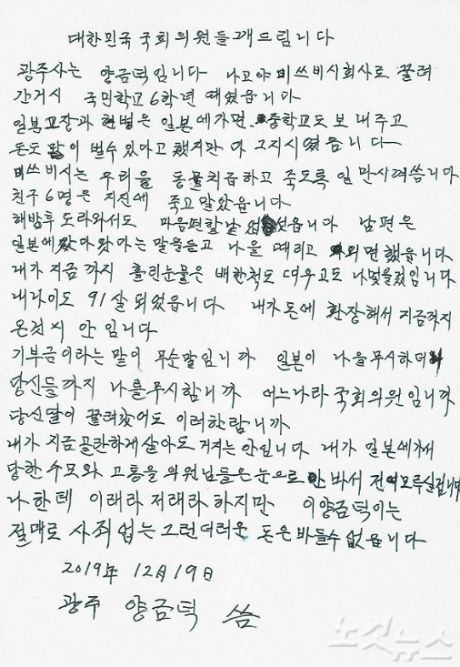 대한민국 국회의원들게 드립니다
광주사는 양금덕입니다 나고야 미쓰비시회사로 끌려
간거시 국민학교 6학년 때였읍니다
일본교장과 헌병은 일본에가면 중학교도 보내주고
돈도 많이 벌수 있다고 했지만 다 그지시였읍니다
미쓰비시는 우리을 동물치급하고 죽도록 일만시켜씀니다
친구 6명은 지진에 죽고 말았읍니다
해방후 도라와서도 마음편할날 업섯읍니다 남편은
일본에 갔다왔다는 말을듣고 나을 때리고 외면했읍니다
내가 지금까지 흘린눈물은 배한척도 띄우고도 나멏을것임니다
내나이도 91살 되었읍니다 내가 돈에 환장해서 지금까지
온것시 안임니다
기부금이라는 말이 무슨말임니까 일본이 나을무시하더니
당신들까지 나를무시함니까 어느나라 국회의원 임니까
당신딸이 끌려갔어도 이러하람니까
내가 지금곤란하게 살아도 거지는 안임니다 내가 일본에가서
당한 수모와 고통을 의원님들은 눈으로 안 바서 전여모르실겁니다
나한테 이래라 저래라 하지만 이양금덕이는
절때로 사죄업는 그런더러운 돈은 바들수 없읍니다
2019年 12月 19日
광주 양금덕 씀
노컷뉴스